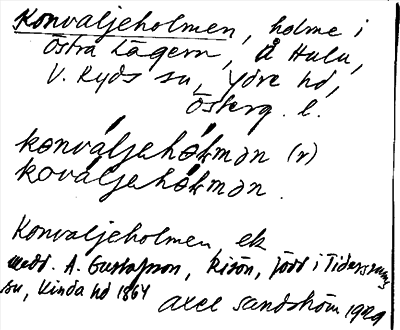 Konvaljeholmen, holme i
Östra Lägern, Å Hulu,
V. Ryds sn, Ydre hd,
Österg. l.
konváljehòlmən (r)
kováljehòlmən.
Konvaljeholmen, ek
medd. A. Gustafsson, Risön, född i Tidersrums
sn, Kinda hd 1864
Axel Sandström 1929